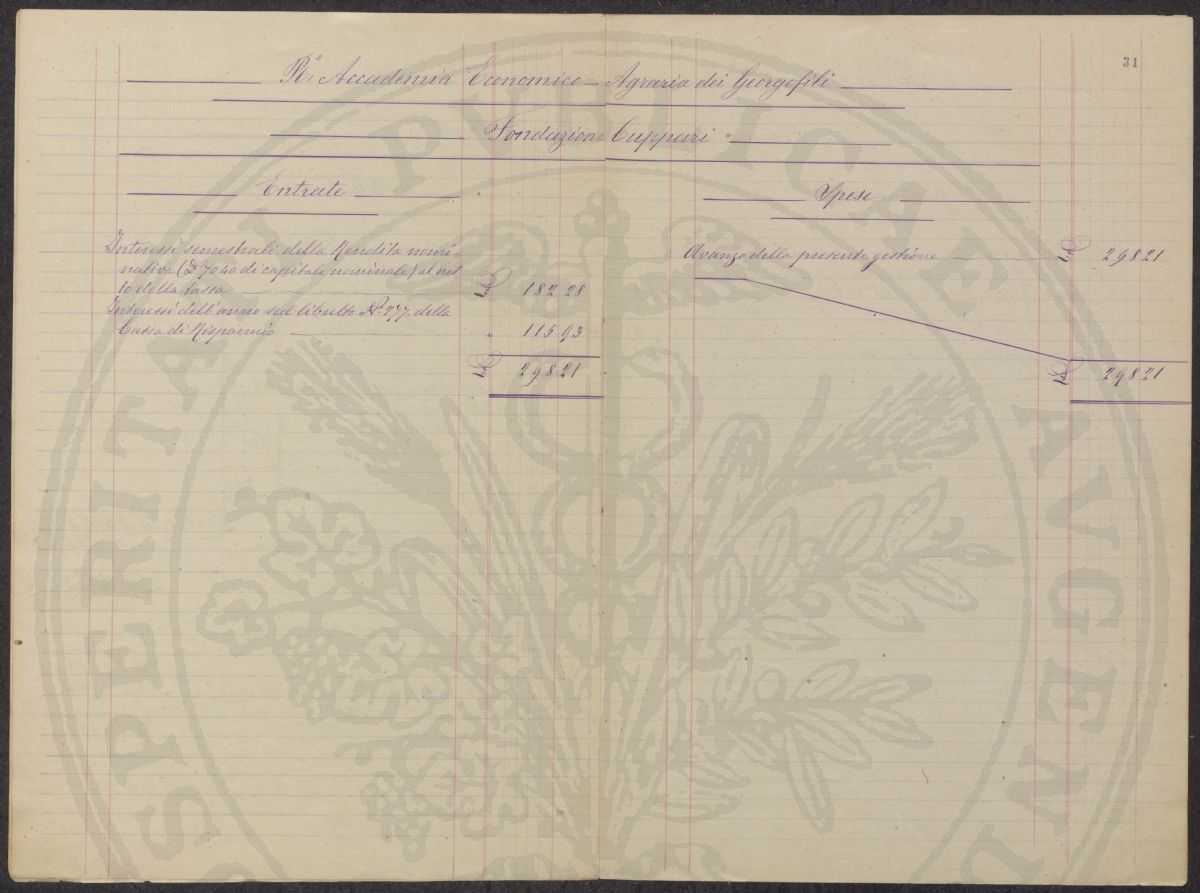 31
R.ª Accademia Economico-Agraria dei Georgofili
Fondazione Cuppari
Entrate
Interessi semestrali della Rendita nomi-
nativa (£ 7040 di capitale nominale) al net
to della tassa £ 182 28
Interessi dell'anno sul libretto N.º 277 della
Cassa di Risparmio " 115 93
£ 298 21
Spese
Avanzo della presente gestione £ 298 21
£ 298 21
PROSPERITATI PUBLICAE AVGENDAE